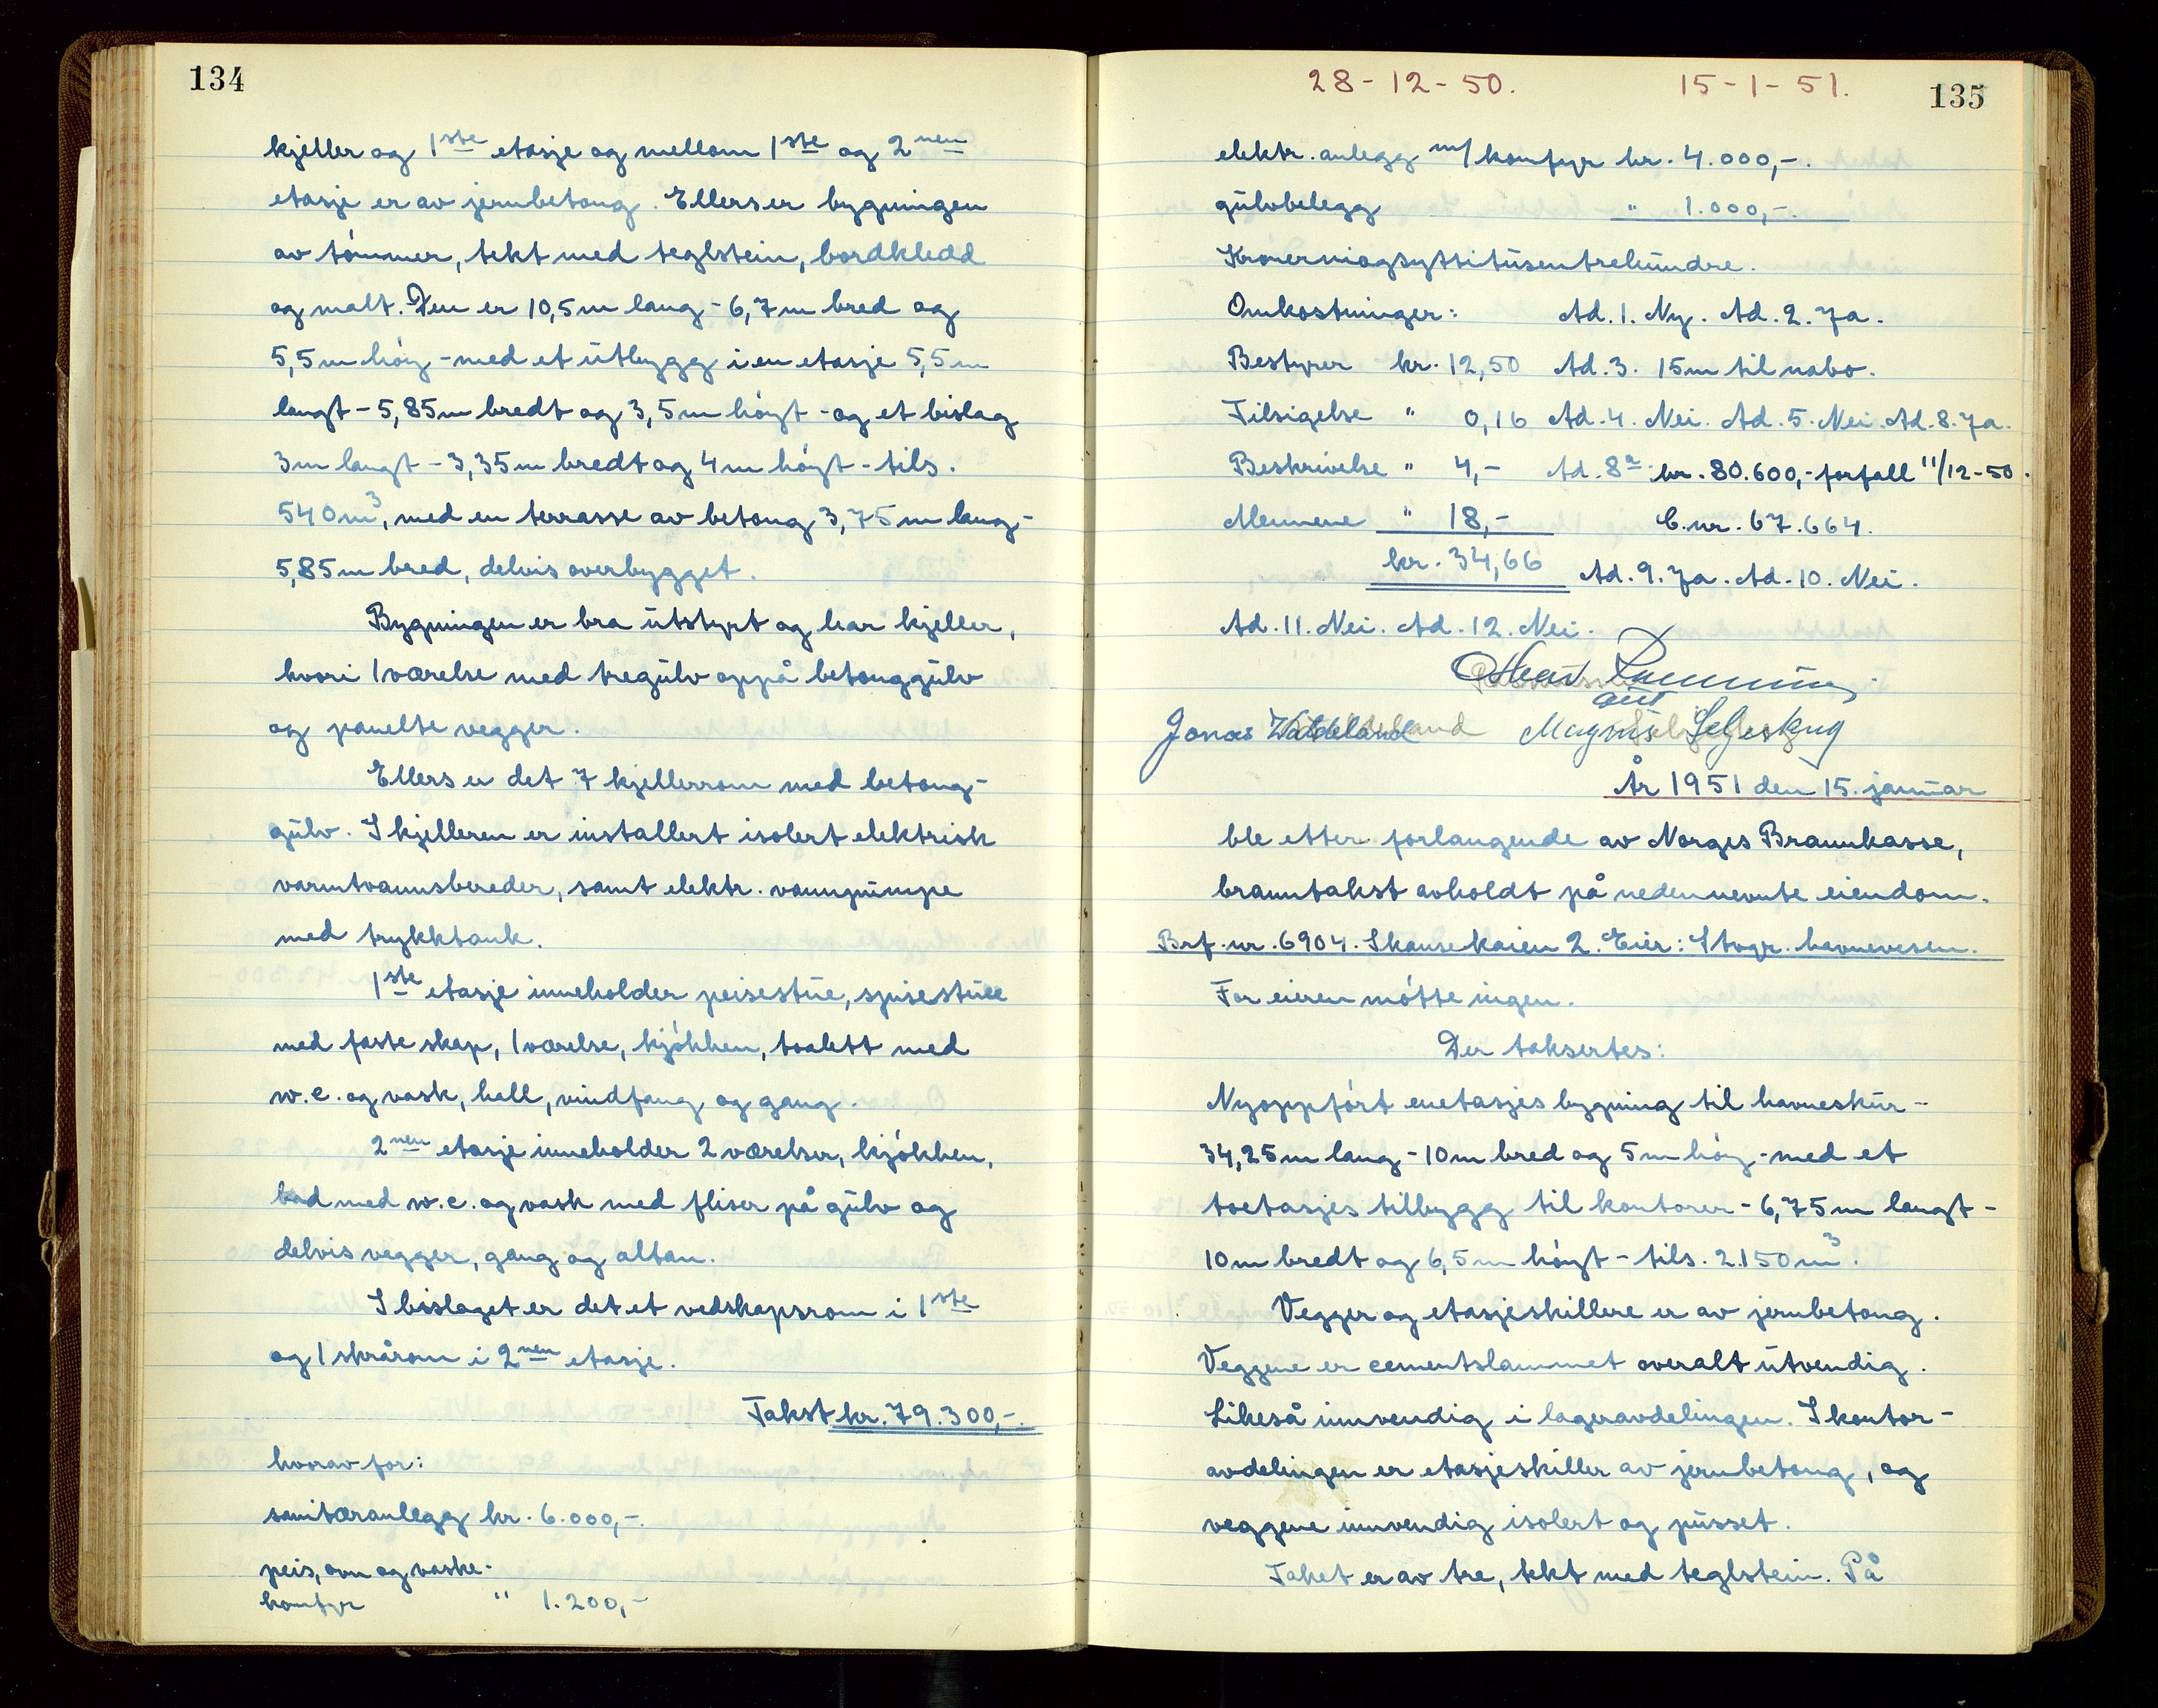 134
kjeller og 1ste etasje og mellom 1ste og 2nen
etasje er av jernbetong. Ellers er bygningen
av tømmer, tekt med teglstein, bordkledd
og malt. Den er 10,5m lang - 6,7m bred og
5,5m høy - med et utbygg i en etasje 5,5m
langt - 5,85m bredt og 3,5m høyt - og et bislag
3m langt - 3,35m bredt og 4m høyt - tils.
540m³, med en terrasse av betong 3,75m lang -
5,85m bred, delvis overbygget.
Bygningen er bra utstyrt og har kjeller,
hvori 1 værelse med tregulv oppå betonggulv
og panelte vegger.
Ellers er det 7 kjellerrom med betong-
gulv. I kjelleren er installert isolert elektrisk
varmtvannsbereder, samt elektr. vannpumpe
med trykktank.
1ste etasje inneholder peisestue, spisestue
med faste skap, 1 værelse, kjøkken, toalett med
w.c. og vask, hall, vindfang og gang.
2nen etasje inneholder 2 værelser, kjøkken,
bad med w.c. og vask med fliser på gulv og
delvis vegger, gang og altan.
I bislaget er det et redskapsrom i 1ste
og 1 skrårom i 2nen etasje.
Takst kr. 79.300,-.
hvorav for:
sanitæranlegg kr. 6.000,-.
peis, ovn og vaske-
komfyr " 1.200,-
28-12-50. 15-1-51. 135
elektr. anlegg m/komfyr kr. 4.000,-.
gulvbelegg " 1.000,-.
Kronerniogsyttitusentrehundre.
Omkostninger: Ad. 1. Ny. Ad. 2. Ja.
Bestyrer kr. 12,50 Ad. 3. 15m til nabo.
Tilsigelse " 0,16 Ad. 4. Nei. Ad. 5. Nei. Ad. 8. Ja.
Beskrivelse " 4,- Ad. 8a kr. 80.600,- forfall 11/12-50.
Mennene " 18,- C.nr. 67.664.
kr. 34,66 Ad. 9. Ja. Ad. 10. Nei.
Ad. 11. Nei. Ad. 12. Nei.
Jonas Watdeland Magnus Seljeskog
År 1951 den 15. januar
ble etter forlangende av Norges Brannkasse,
branntakst avholdt på nedennevnte eiendom.
Brf.nr. 6904. Skansekaien 2. Eier: Stvgr. havnevesen.
For eieren møtte ingen.
Der taksertes:
Nyoppført enetasjes bygning til havneskur -
34,25m lang - 10m bred og 5m høy - med et
toetasjes tilbygg til kontorer - 6,75m langt -
10m bredt og 6,5m høyt - tils. 2.150m³.
Vegger og etasjeskillere er av jernbetong.
Veggene er cementslammet overalt utvendig.
Likeså innvendig i lageravdelingen. I kontor-
avdelingen er etasjeskiller av jernbetong, og
veggene innvendig isolert og pusset.
Taket er av tre, tekt med teglstein. På